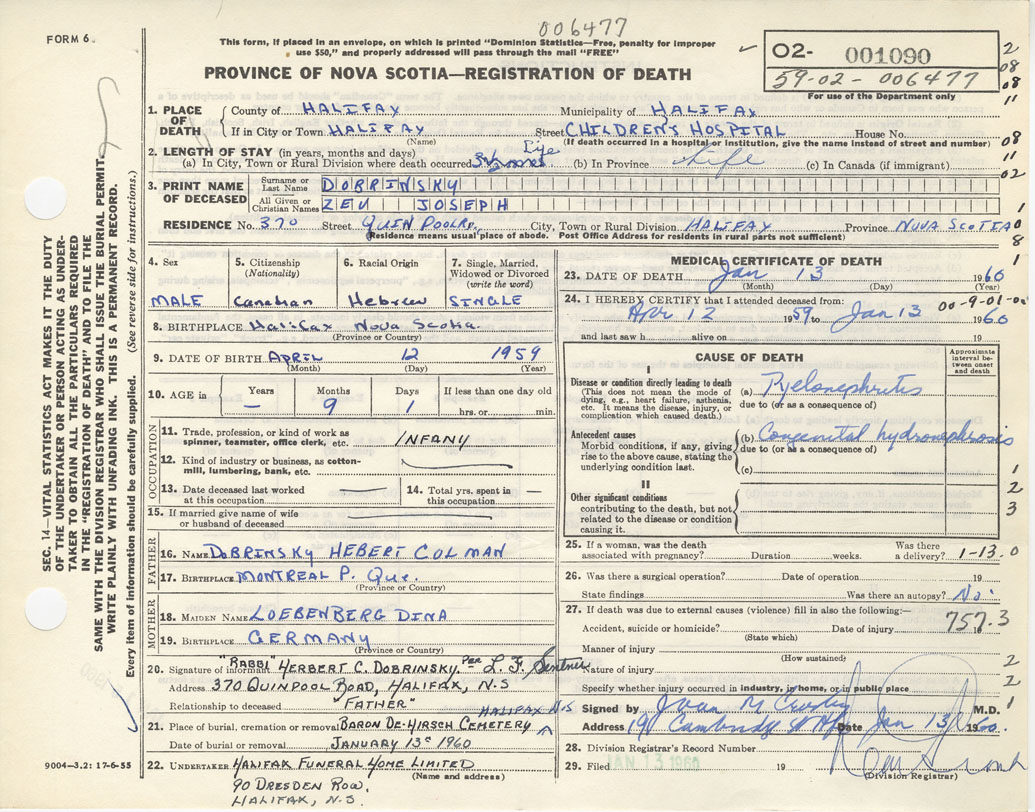 006477
FORM 6.
This form, if placed in an envelope, on which is printed "Dominion Statistics—Free, penalty for improper
use $50," and properly addressed will pass through the mail "FREE"
PROVINCE OF NOVA SCOTIA—REGISTRATION OF DEATH
O2- 001090
59-02-006477
For use of the Department only
2
08
08
11
1. PLACE OF DEATH County of HALIFAX Municipality of HALIFAX
If in City or Town HALIFAX Street CHILDREN'S HOSPITAL House No.
(Name) (If death occurred in a hospital or institution, give the name instead of street and number)
08
11
2. LENGTH OF STAY (in years, months and days)
(a) In City, Town or Rural Division where death occurred (b) In Province Life (c) In Canada (if immigrant)
02
3. PRINT NAME OF DECEASED
Surname or Last Name DOBRINSKY
All Given or Christian Names ZEV JOSEPH
1
RESIDENCE No. 370 Street QUINPOOL RD. City, Town or Rural Division HALIFAX Province NOVA SCOTIA
(Residence means usual place of abode. Post Office Address for residents in rural parts not sufficient)
0
8
1
SEC. 14—VITAL STATISTICS ACT MAKES IT THE DUTY
OF THE UNDERTAKER OR PERSON ACTING AS UNDER-
TAKER TO OBTAIN ALL THE PARTICULARS REQUIRED
IN THE "REGISTRATION OF DEATH" AND TO FILE THE
SAME WITH THE DIVISION REGISTRAR WHO SHALL ISSUE THE BURIAL PERMIT.
WRITE PLAINLY WITH UNFADING INK. THIS IS A PERMANENT RECORD.
Every item of information should be carefully supplied. (See reverse side for instructions.)
4. Sex
MALE
5. Citizenship
(Nationality)
Canadian
6. Racial Origin
Hebrew
7. Single, Married,
Widowed or Divorced
(write the word)
SINGLE
8. BIRTHPLACE Halifax Nova Scotia
(Province or Country)
9. DATE OF BIRTH APRIL 12 1959
(Month) (Day) (Year)
10. AGE IN Years Months Days If less than one day old
— 9 1 hrs. or min.
OCCUPATION
11. Trade, profession or kind of work as
spinner, teamster, office clerk, etc. INFANY
12. Kind of industry or business, as cotton-
mill, lumbering, bank, etc.
13. Date deceased last worked
at this occupation —
14. Total yrs. spent in
this occupation —
15. If married give name of wife
or husband of deceased —
FATHER
16. NAME DOBRINSKY HEBERT COLMAN
17. BIRTHPLACE MONTREAL P. Que.
(Province or Country)
MOTHER
18. MAIDEN NAME LOEBENBERG DINA
19. BIRTHPLACE GERMANY
(Province or Country)
20. Signature of informant "RABBI" HERBERT C. DOBRINSKY. Per L. F.
Address 370 QUINPOOL ROAD, HALIFAX, N.S
Relationship to deceased "FATHER"
HALIFAX N.S
21. Place of burial, cremation or removal BARON DE-HIRSCH CEMETERY
Date of burial or removal JANUARY 13 1960
22. UNDERTAKER HALIFAX FUNERAL HOME LIMITED
(Name and address)
90 DRESDEN ROW.
HALIFAX, N.S.
9004—3.2: 17-6-55
MEDICAL CERTIFICATE OF DEATH
23. DATE OF DEATH Jan 13 1960
(Month) (Day) (Year)
24. I HEREBY CERTIFY that I attended deceased from: 00-9-01-
Apr 12 1959 to Jan 13 1960
and last saw h alive on 19
CAUSE OF DEATH
Approximate interval between onset and death
I
Disease or condition directly leading to death
(This does not mean the mode of dying, e.g., heart failure, asthenia, etc. It means the disease, injury, or complication which caused death.)
(a) Pyelonephritis
due to (or as a consequence of)
Antecedent causes
Morbid conditions, if any, giving rise to the above cause, stating the underlying condition last.
(b) Congenital hydronephrosis
due to (or as a consequence of)
(c)
II
Other significant conditions
contributing to the death, but not related to the disease or condition causing it.
1
2
3
25. If a woman, was the death
associated with pregnancy? Duration weeks. Was there a delivery? 1-13.0
26. Was there a surgical operation? Date of operation 19
State findings Was there an autopsy? No.
27. If death was due to external causes (violence) fill in also the following:— 757.3
Accident, suicide or homicide? Date of injury
(State which)
Manner of injury
(How sustained)
Nature of injury
Specify whether injury occurred in industry, in home, or in public place
2
2
1
Signed by Joan M Crosby M.D.
Address 19 Cambridge St Hfx Date Jan 13 1960.
28. Division Registrar's Record Number
29. Filed JAN 13 1960 19
(Division Registrar)